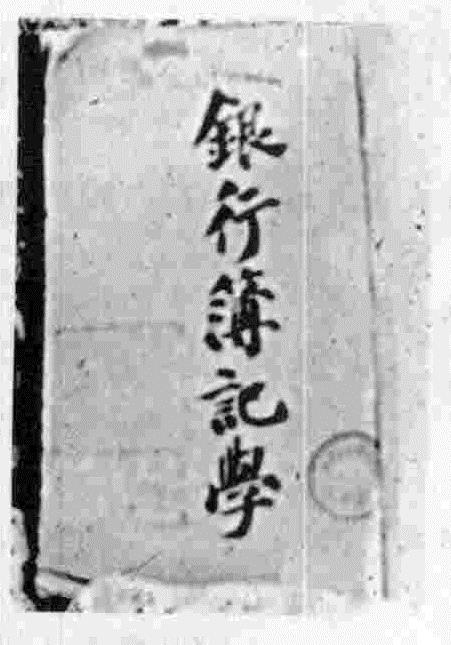 銀行簿記學